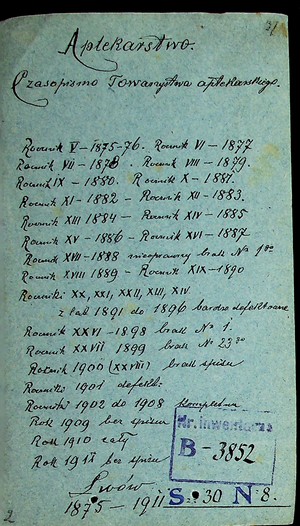 31
Aptekarstwo.
Czasopismo Towarzystwa aptekarskiego.
Rocznik V – 1875-76. Rocznik VI – 1877
Rocznik VII – 1878. Rocznik VIII – 1879.
Rocznik IX – 1880. Rocznik X – 1881.
Rocznik XI – 1882 – Rocznik XII – 1883.
Rocznik XIII 1884 – Rocznik XIV – 1885
Rocznik XV – 1886 – Rocznik XVI – 1887
Rocznik XVII – 1888 nieoprawny brak No
Rocznik XVIII 1889 – Rocznik XIX – 1890
Roczniki XX, XXI, XXII, XIII, XIV
z lat 1891 do 1896 bardzo defektowne
Rocznik XXVI – 1898 brak No 1.
Rocznik XXVII 1899 brak No 23
Rocznik 1900 (XXVIII) brak spisu
Rocznik 1901 defekt.
Roczniki 1902 do 1908 kompletne
Rok 1909 bez spisu
Rok 1910 cały
Rok 1911 bez spisu
Lwów
1875 – 1911
Nr. inwentarza
B – 3852
S. 30 N 8.
2